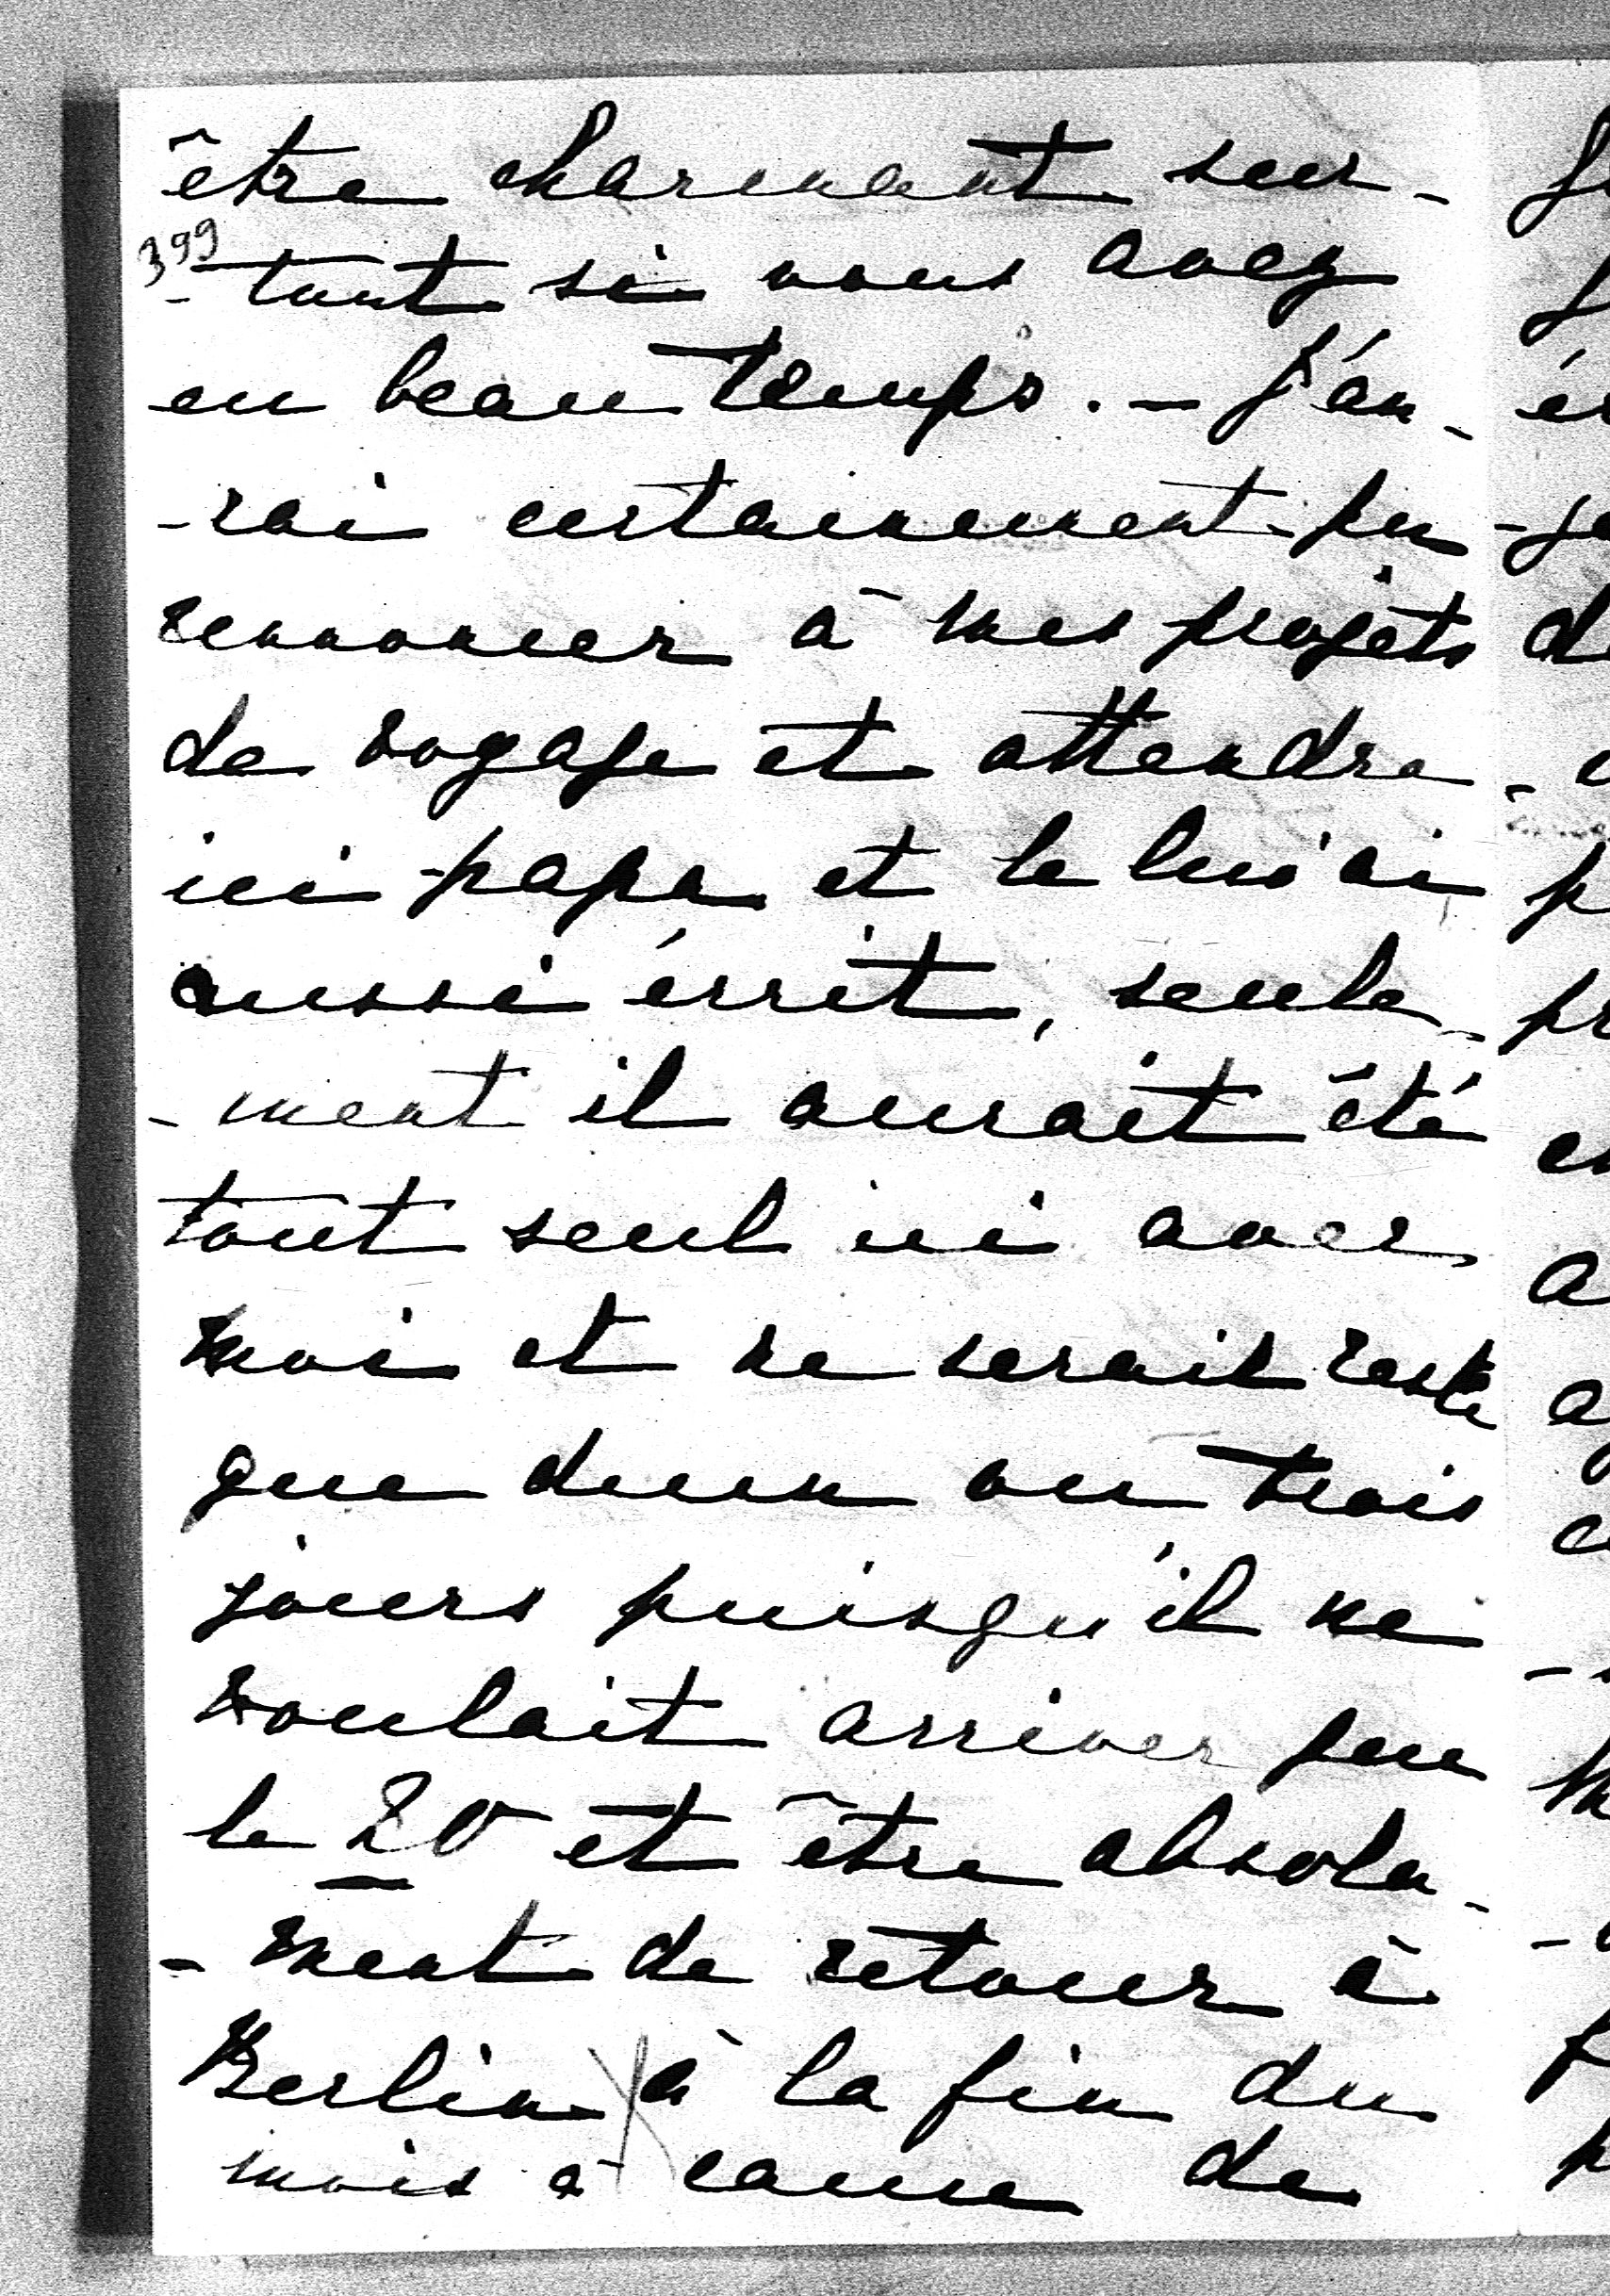 être charmant sur-
399
-tout si vous avez
eu beau temps. - J'au-
-rai certainement pu
renoncer à mes projets
de voyage et attendre
ici papa et le lui ai
aussi écrit, seule-
-ment il aurait été
tout seul ici avec
moi et ne serait resté
que deux ou trois
jours puisqu'il ne
voulait arriver que
le 20 et être absolu-
-ment de retour à
Berlin à la fin du
mois à cause de